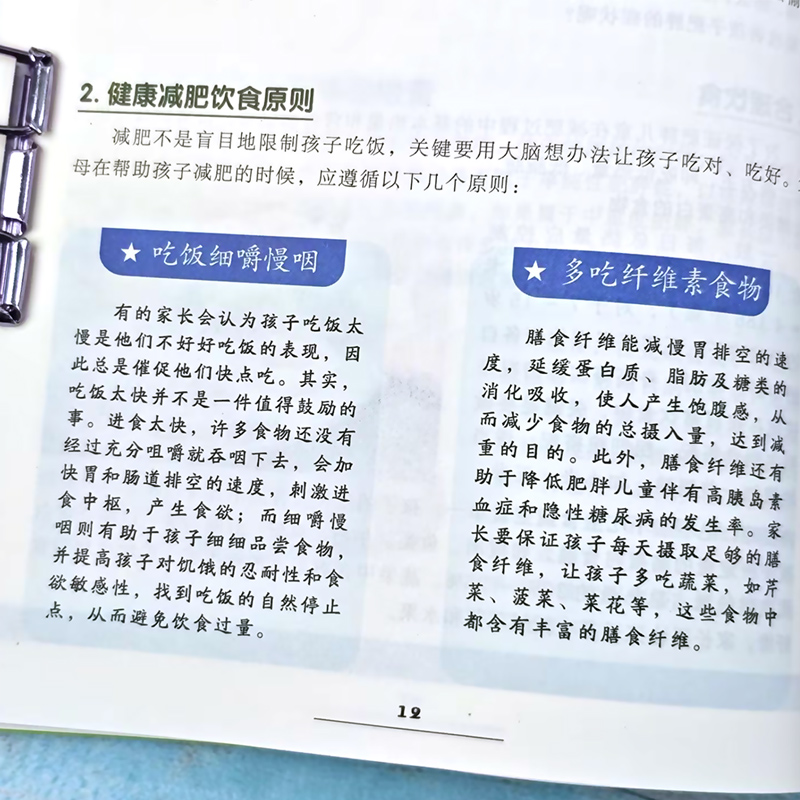 2. 健康减肥饮食原则
减肥不是盲目地限制孩子吃饭，关键要用大脑想办法让孩子吃对、吃好。
母在帮助孩子减肥的时候，应遵循以下几个原则：
★ 吃饭细嚼慢咽
有的家长会认为孩子吃饭太
慢是他们不好好吃饭的表现，因
此总是催促他们快点吃。其实，
吃饭太快并不是一件值得鼓励的
事。进食太快，许多食物还没有
经过充分咀嚼就吞咽下去，会加
快胃和肠道排空的速度，刺激进
食中枢，产生食欲；而细嚼慢
咽则有助于孩子细细品尝食物，
并提高孩子对饥饿的忍耐性和食
欲敏感性，找到吃饭的自然停止
点，从而避免饮食过量。
★ 多吃纤维素食物
膳食纤维能减慢胃排空的速
度，延缓蛋白质、脂肪及糖类的
消化吸收，使人产生饱腹感，从
而减少食物的总摄入量，达到减
重的目的。此外，膳食纤维还有
助于降低肥胖儿童伴有高胰岛素
血症和隐性糖尿病的发生率。家
长要保证孩子每天摄取足够的膳
食纤维，让孩子多吃蔬菜，如芹
菜、菠菜、菜花等，这些食物中
都含有丰富的膳食纤维。
12